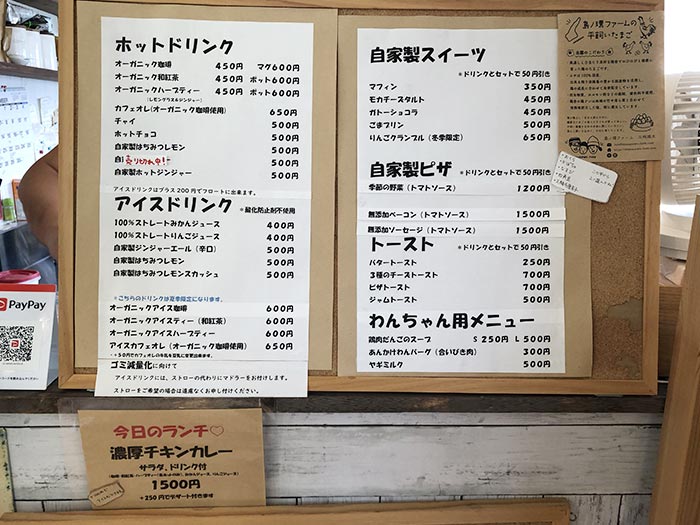 ホットドリンク
オーガニック珈琲 450円 マグ600円
オーガニック和紅茶 450円 ポット600円
オーガニックハーブティー 450円 ポット600円
(レモングラス&ジンジャー)
カフェオレ(オーガニック珈琲使用) 650円
チャイ 500円
ホットチョコ 500円
自家製はちみつレモン 500円
自 売り切れ中!! 500円
自家製ホットジンジャー 500円
アイスドリンクはプラス200円でフロートに出来ます。
アイスドリンク *酸化防止剤不使用
100%ストレートみかんジュース 400円
100%ストレートりんごジュース 400円
自家製ジンジャーエール(辛口) 500円
自家製はちみつレモン 500円
自家製はちみつレモンスカッシュ 500円
*こちらのドリンクは夏季限定になります。
オーガニックアイス珈琲 600円
オーガニックアイスティー(和紅茶) 600円
オーガニックアイスハーブティー 600円
アイスカフェオレ(オーガニック珈琲使用) 650円
*+50円でカフェオレの牛乳を豆乳に変更出来ます。
ゴミ減量化に向けて
アイスドリンクには、ストローの代わりにマドラーをお付けします。
ストローをご希望の場合は遠慮なくお申し付けください。
自家製スイーツ
*ドリンクとセットで50円引き
マフィン 350円
モカチーズタルト 450円
ガトーショコラ 450円
ごまプリン 500円
りんごクランブル(冬季限定) 650円
自家製ピザ
*ドリンクとセットで50円引き
季節の野菜(トマトソース) 1200円
無添加ベーコン(トマトソース) 1500円
無添加ソーセージ(トマトソース) 1500円
トースト *ドリンクとセットで50円引き
バタートースト 250円
3種のチーズトースト 700円
ピザトースト 700円
ジャムトースト 500円
わんちゃん用メニュー
鶏肉だんごのスープ S 250円 L 500円
あんかけわんバーグ(合いびき肉) 300円
ヤギミルク 500円
島ノ環ファームの
平飼いたまご
PayPay
今日のランチ♡
濃厚チキンカレー
サラダ、ドリンク付
1500円
+250円でデザート付きます